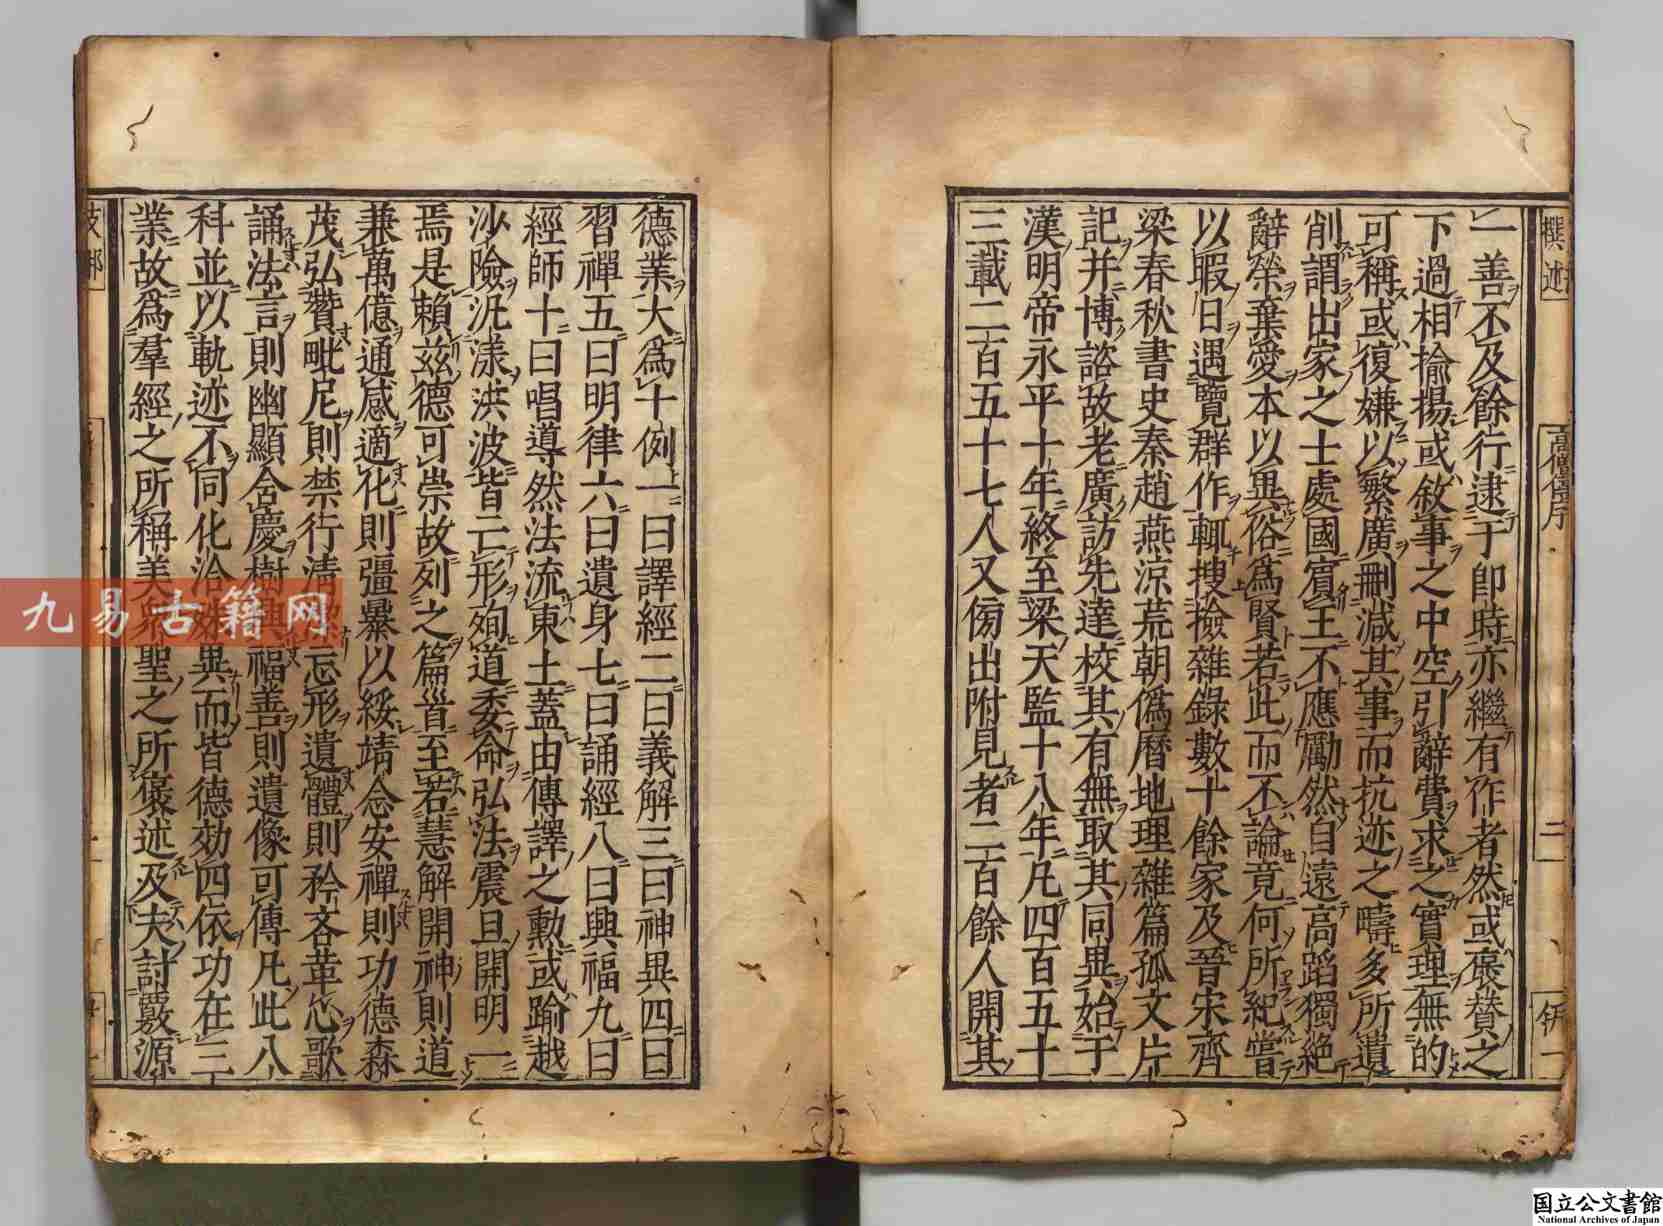 撰述
高僧傳序
二
一善不及餘行逮于即時亦繼有作者然或褒贊之
下過相揄揚或敘事之中空引辭費求之實理無的
可稱或復嫌以繁廣刪減其事而抗迹之疇多所遺
削謂出家之士處國賓王不應勵然自遠高蹈獨絕
辭榮棄愛本以異俗爲賢若此而不論竟何所紀嘗
以暇日遇覽群作輒搜撿雜錄數十餘家及晉宋齊
梁春秋書史秦趙燕涼荒朝僞曆地理雜篇孤文片
記并博諮故老廣訪先達校其有無取其同異始于
漢明帝永平十年終至梁天監十八年凡四百五十
三載二百五十七人又傍出附見者二百餘人開其
德業大爲十例一曰譯經二曰義解三曰神異四曰
習禪五曰明律六曰遺身七曰誦經八曰興福九曰
經師十曰唱導然法流東土蓋由傳譯之勳或踰越
沙險汎漾洪波皆亡形殉道委命弘法震旦開明一
焉是賴兹德可崇故列之篇首至若慧解開神則道
兼萬億通感適化則彊暴以綏靖念安禪則功德森
茂弘贊毗尼則禁行清忘形遺體則矜吝革心歌
誦法言則幽顯含慶樹興福善則遺像可傳凡此八
科並以軌迹不同化洽異而皆德効四依功在三
業故爲羣經之所稱美聖之所褒述及夫討覈源
九易古籍网
国立公文書館
National Archives of Japan